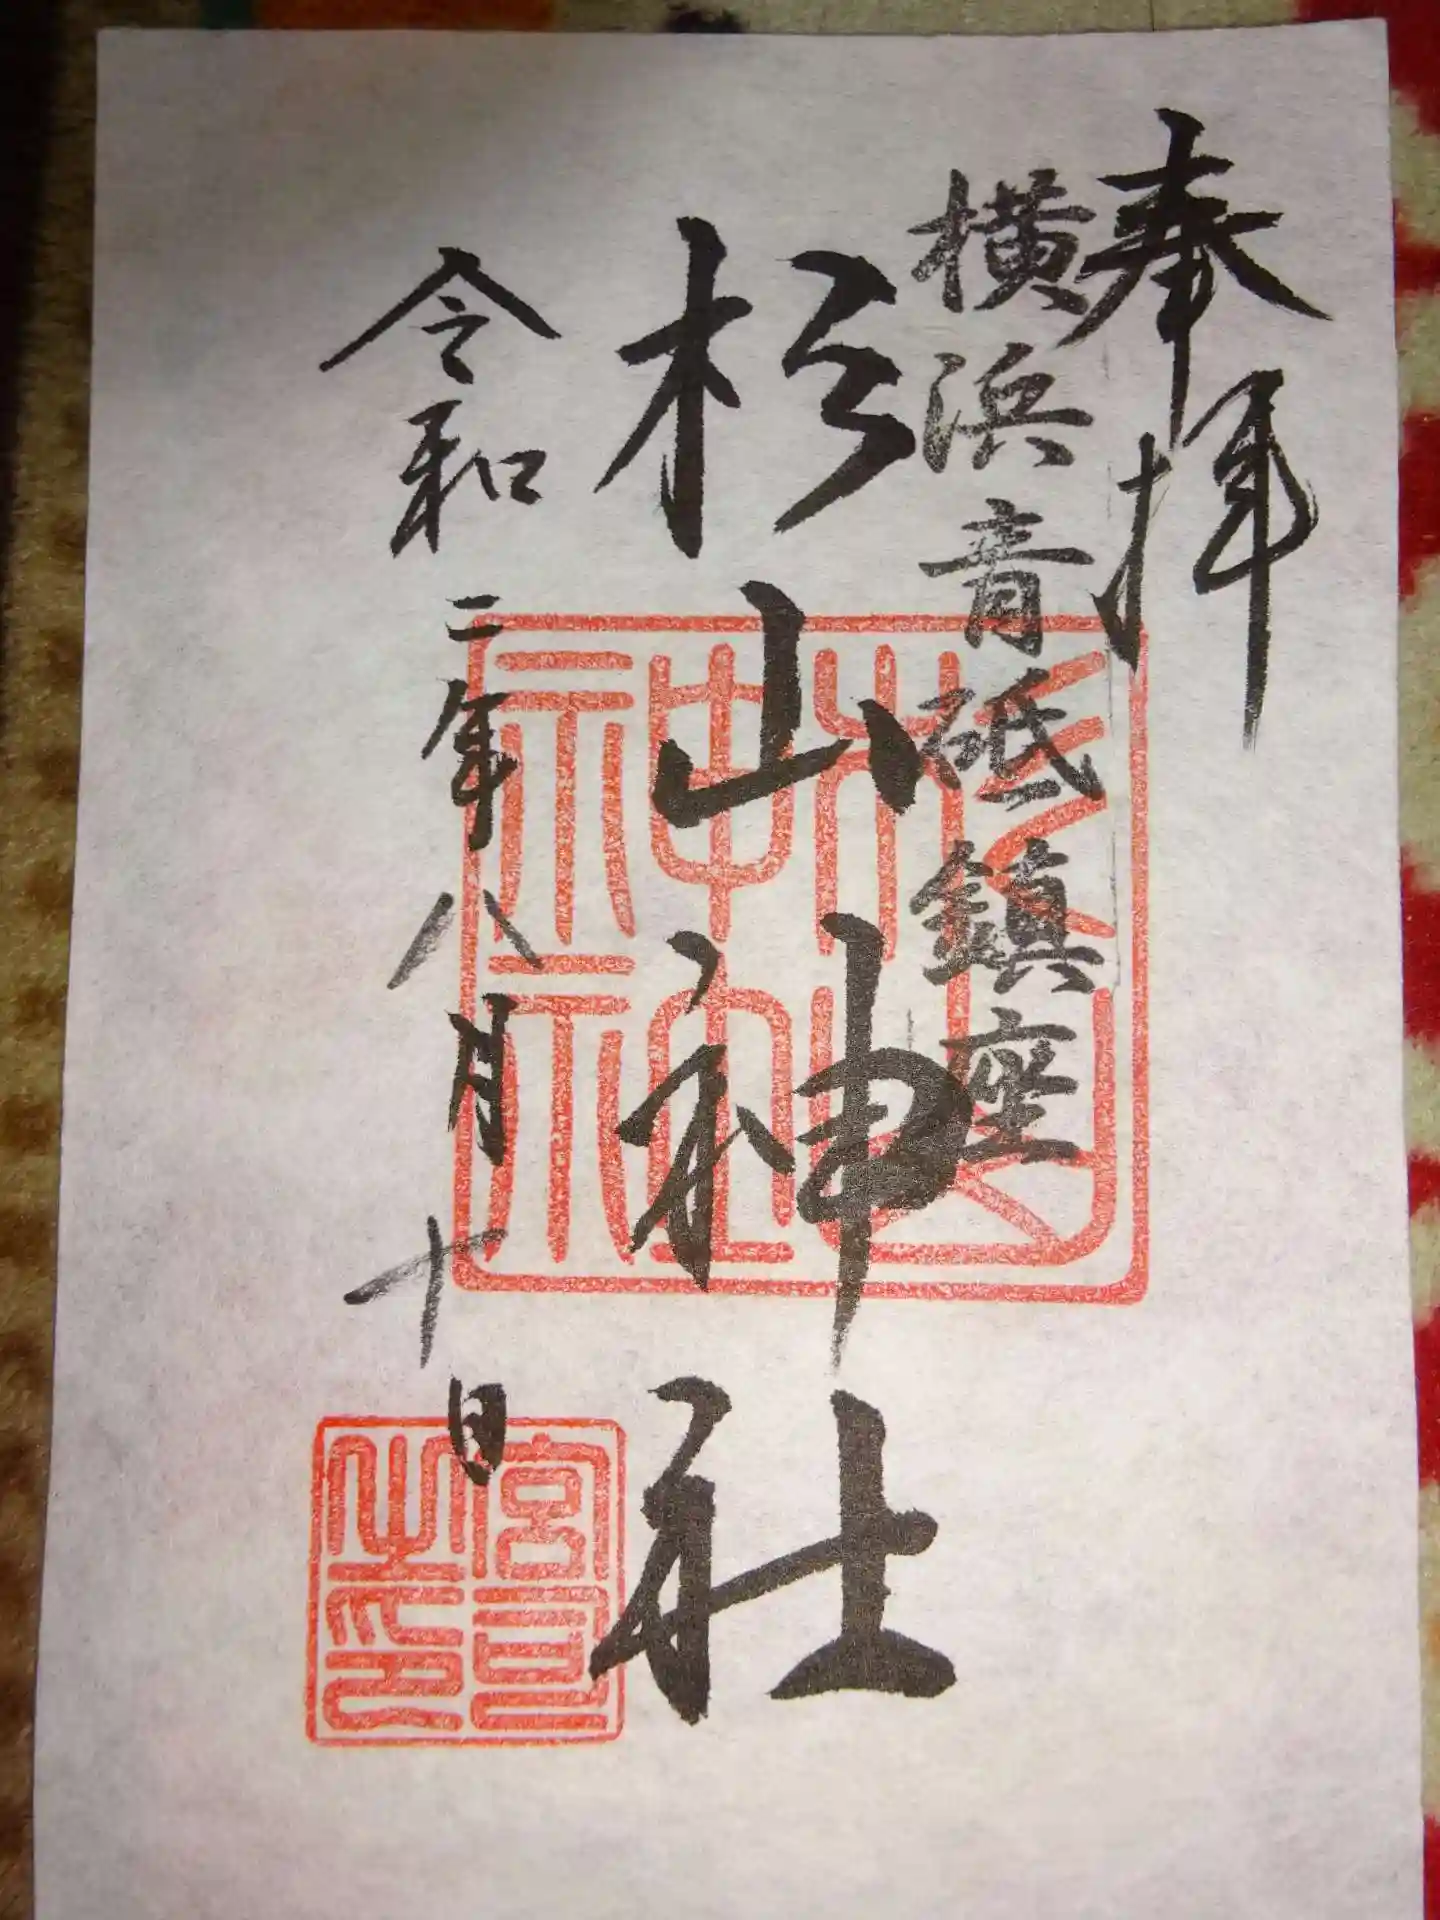 奉拝
横浜青砥鎮座
杉山神社
令和二年八月十日
杉山神社
宮司之印